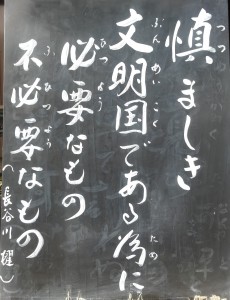 慎ましき
文明国である為に
必要なもの
不必要なもの
(長谷川 櫂)